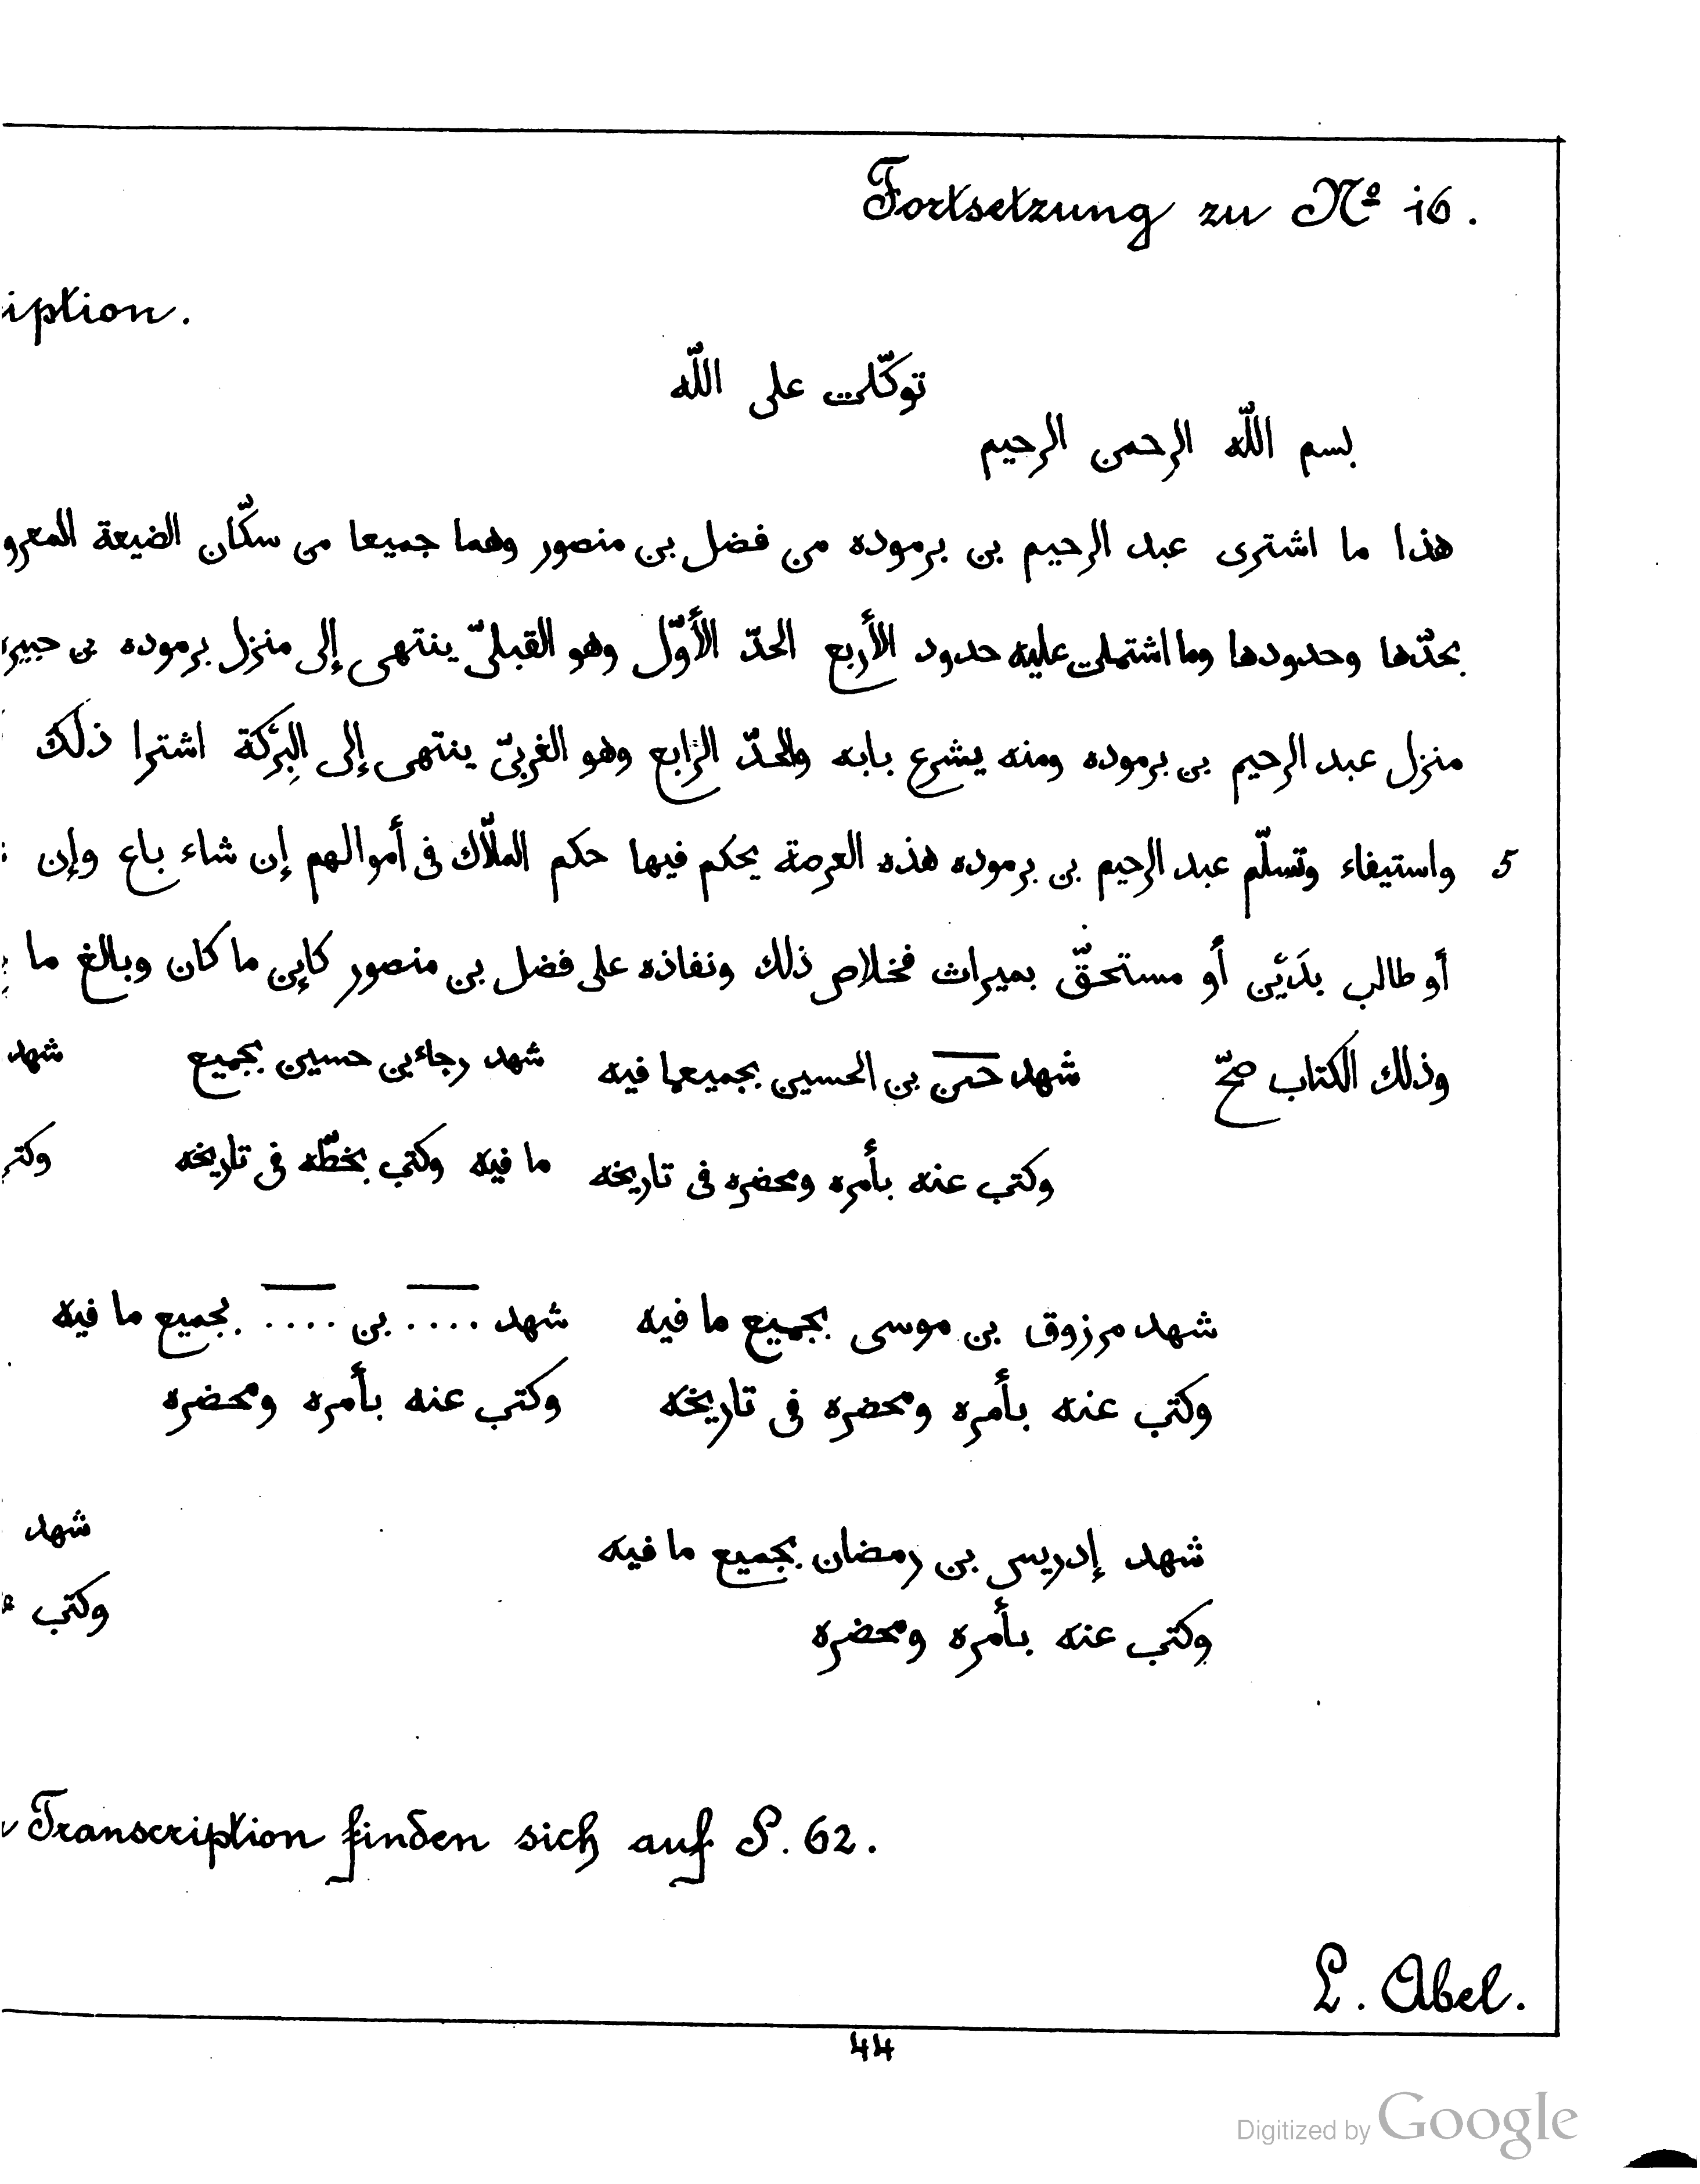 Fortsetzung zu Nº 16.
iption.
توكّلت على اللّه
بسم اللّه الرحمن الرحيم
هذا ما اشترى عبد الرحيم بن برموده من فضل بن منصور وهما جميعا من سكّان الضيعة المعرو
بحدّها وحدودها وما اشتملت عليه حدود الأربع الحدّ الأوّل وهو القبلىّ ينتهى إلى منزل برموده بن
منزل عبد الرحيم بن برموده ومنه يشرع بابه والحدّ الرابع وهو الغربىّ ينتهى إلى البِرْكة اشترا ذلك
5 واستيفاء وتسلّم عبد الرحيم بن برموده هذه العرصة يحكم فيها حكم الملّاك فى أموالهم إن شاء باع وإن
أو طالب بدَيْن أو مستحقّ بميراث فخلاص ذلك ونفاذه على فضل بن منصور كاين ما كان وبالغ ما
وذلك الكتاب صحّ شهد حسن بن الحسين بجميعما فيه شهد رجاء بن حسين بجميع شهد
وكتب عنه بأمره ومحضره فى تاريخه ما فيه وكتب بخطّه فى تاريخه وكتب
شهد مرزوق بن موسى بجميع ما فيه شهد .... بن .... بجميع ما فيه
وكتب عنه بأمره ومحضره فى تاريخه وكتب عنه بأمره ومحضره
شهد إدريس بن رمضان بجميع ما فيه شهد
وكتب عنه بأمره ومحضره وكتب
Transcription finden sich auf S. 62.
L. Abel.
44
Digitized by Google